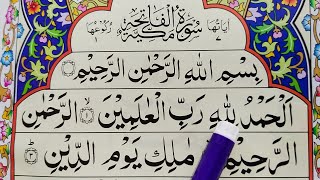 اٰیَاتُهَا ٧ سُوْرَةُ الْفَاتِحَةِ مَكِّيَّةٌ رُكُوْعُهَا ١
بِسْمِ اللّٰهِ الرَّحْمٰنِ الرَّحِيْمِ
اَلْحَمْدُ لِلّٰهِ رَبِّ الْعٰلَمِيْنَ ۙ﴿١﴾ الرَّحْمٰنِ
الرَّحِيْمِ مٰلِكِ يَوْمِ الدِّيْنِ ؕ﴿٣﴾